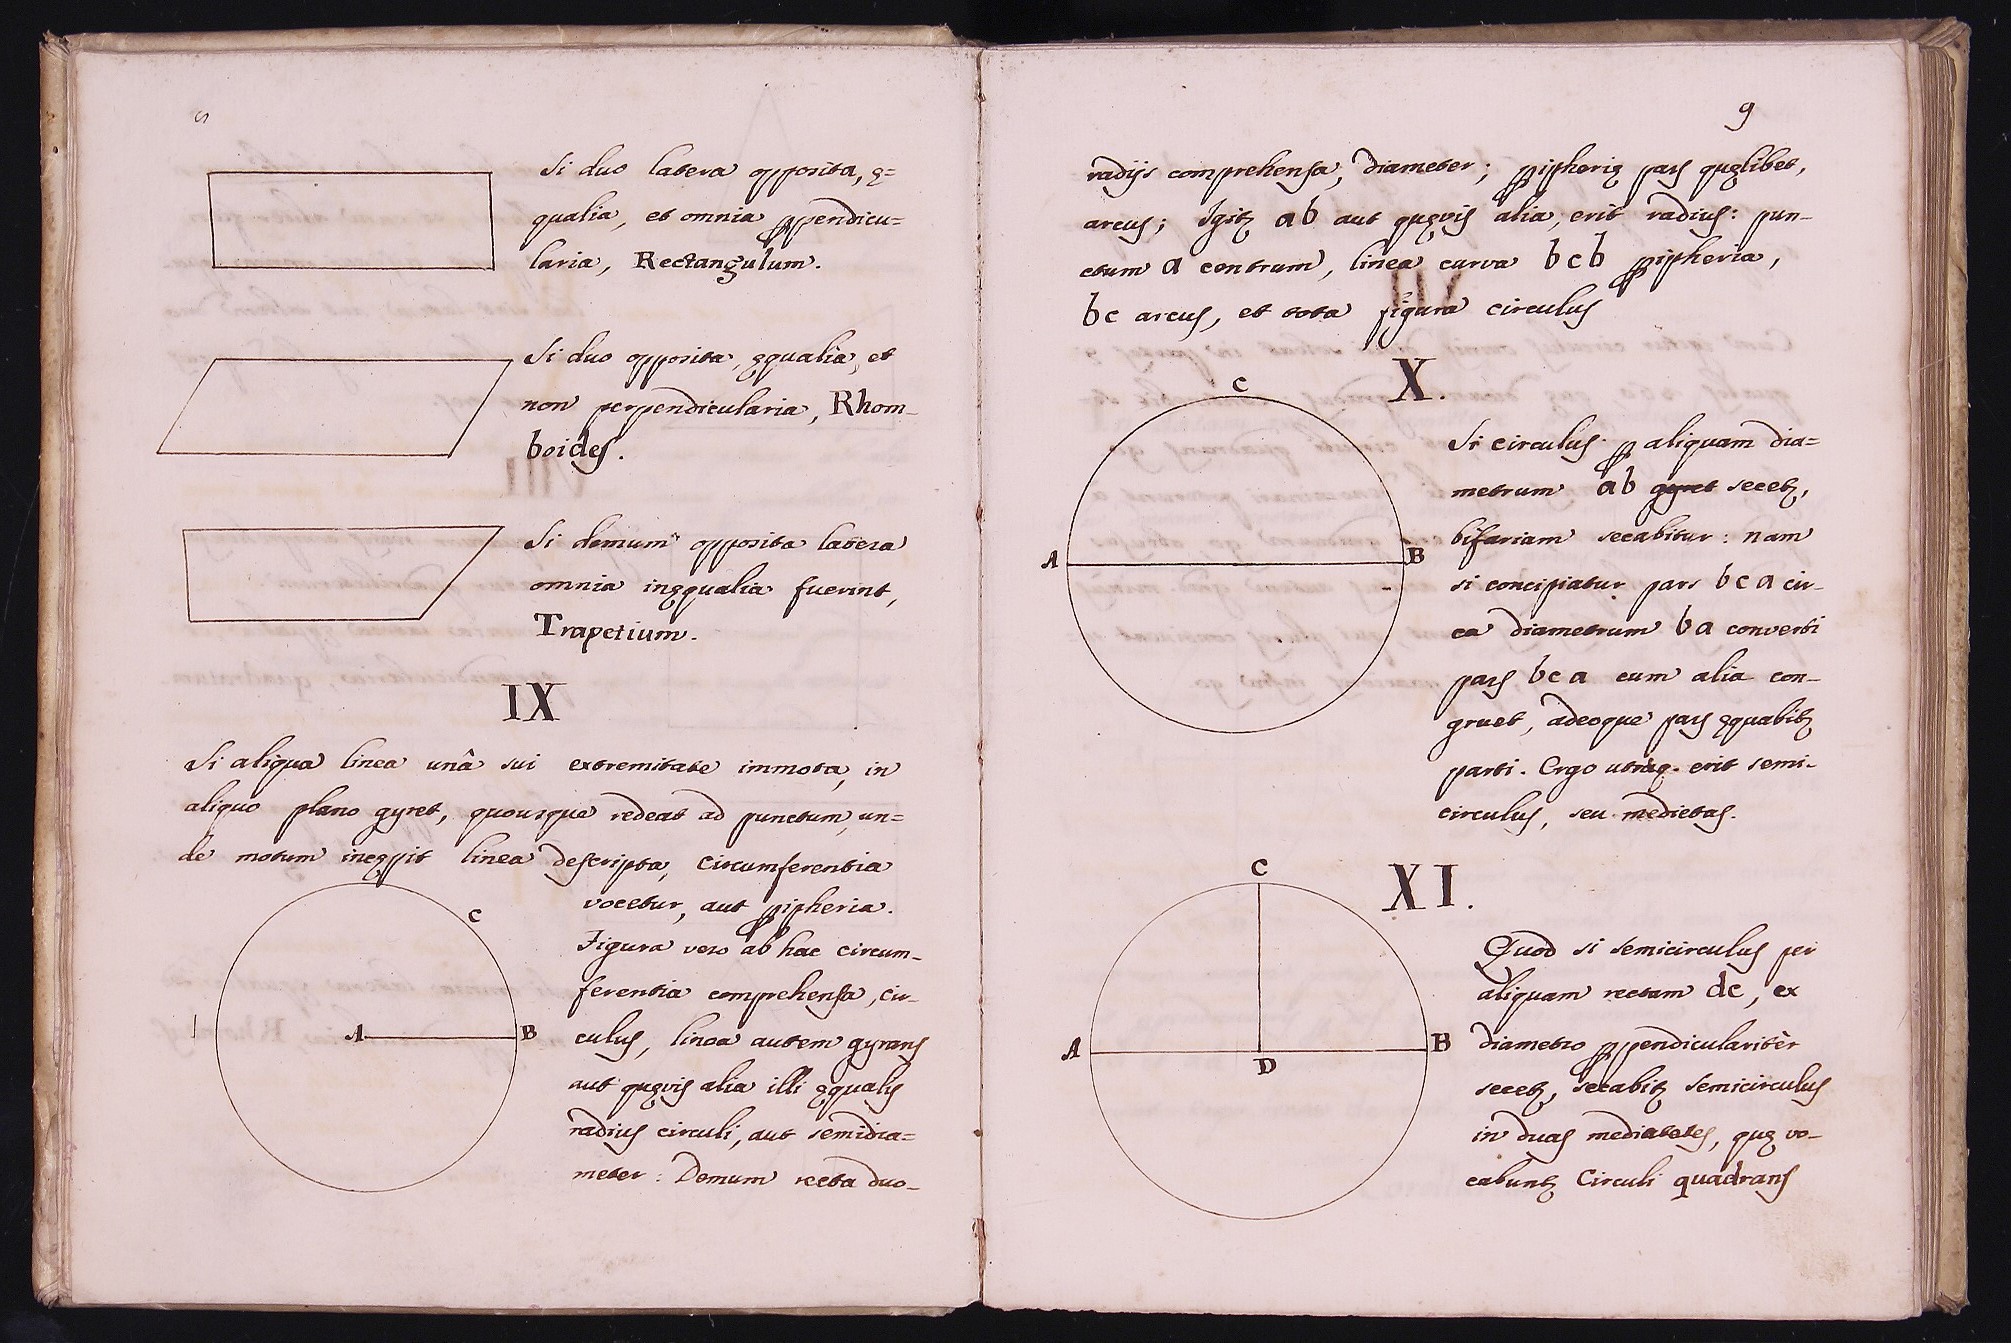 8
Si duo latera opposita, ę=
qualia, et omnia ꝑpendicu=
laria, Rectangulum.
Si duo opposita, ęqualia, et
non perpendicularia, Rhom-
boides.
Si demum opposita latera
omnia inęqualia fuerint,
Trapetium.
IX
Si aliqua linea unâ sui extremitate immota, in
aliquo plano gyret, quousque redeat ad punctum, un=
de motum incęꝑit linea descripta, Circumferentia
vocetur, aut ꝑipheria.
Figura vero ab hac circum-
ferentia comprehensa, cir-
culus, linea autem gyrans
aut quęvis alia illi ęqualis
radius circuli, aut semidia=
meter: Demum recta duo-
C
A
B
9
radijs comprehensa, diameter; ꝑipherię pars quęlibet,
arcus; Igitꝫ ab aut quęvis alia, erit radius: pun-
ctum a centrum, linea curva bcb ꝑipheria,
bc arcus, et tota figura circulus
X.
C
A
B
Si circulus ꝑ aliquam dia=
metrum ab gyret secetꝫ,
bifariam secabitur: nam
si concipiatur pars bca cir-
ca diametrum ba converti
pars bca cum alia con-
gruet, adeoque pars ęquabitꝫ
parti. Ergo utraq. erit semi-
circulus, seu medietas.
XI.
C
A
B
D
Quod si semicirculus per
aliquam rectam dc, ex
diametro ꝑpendiculariter
secetꝫ, secabitꝫ semicirculus
in duas medietates, quę vo-
cabuntꝫ Circuli quadrans